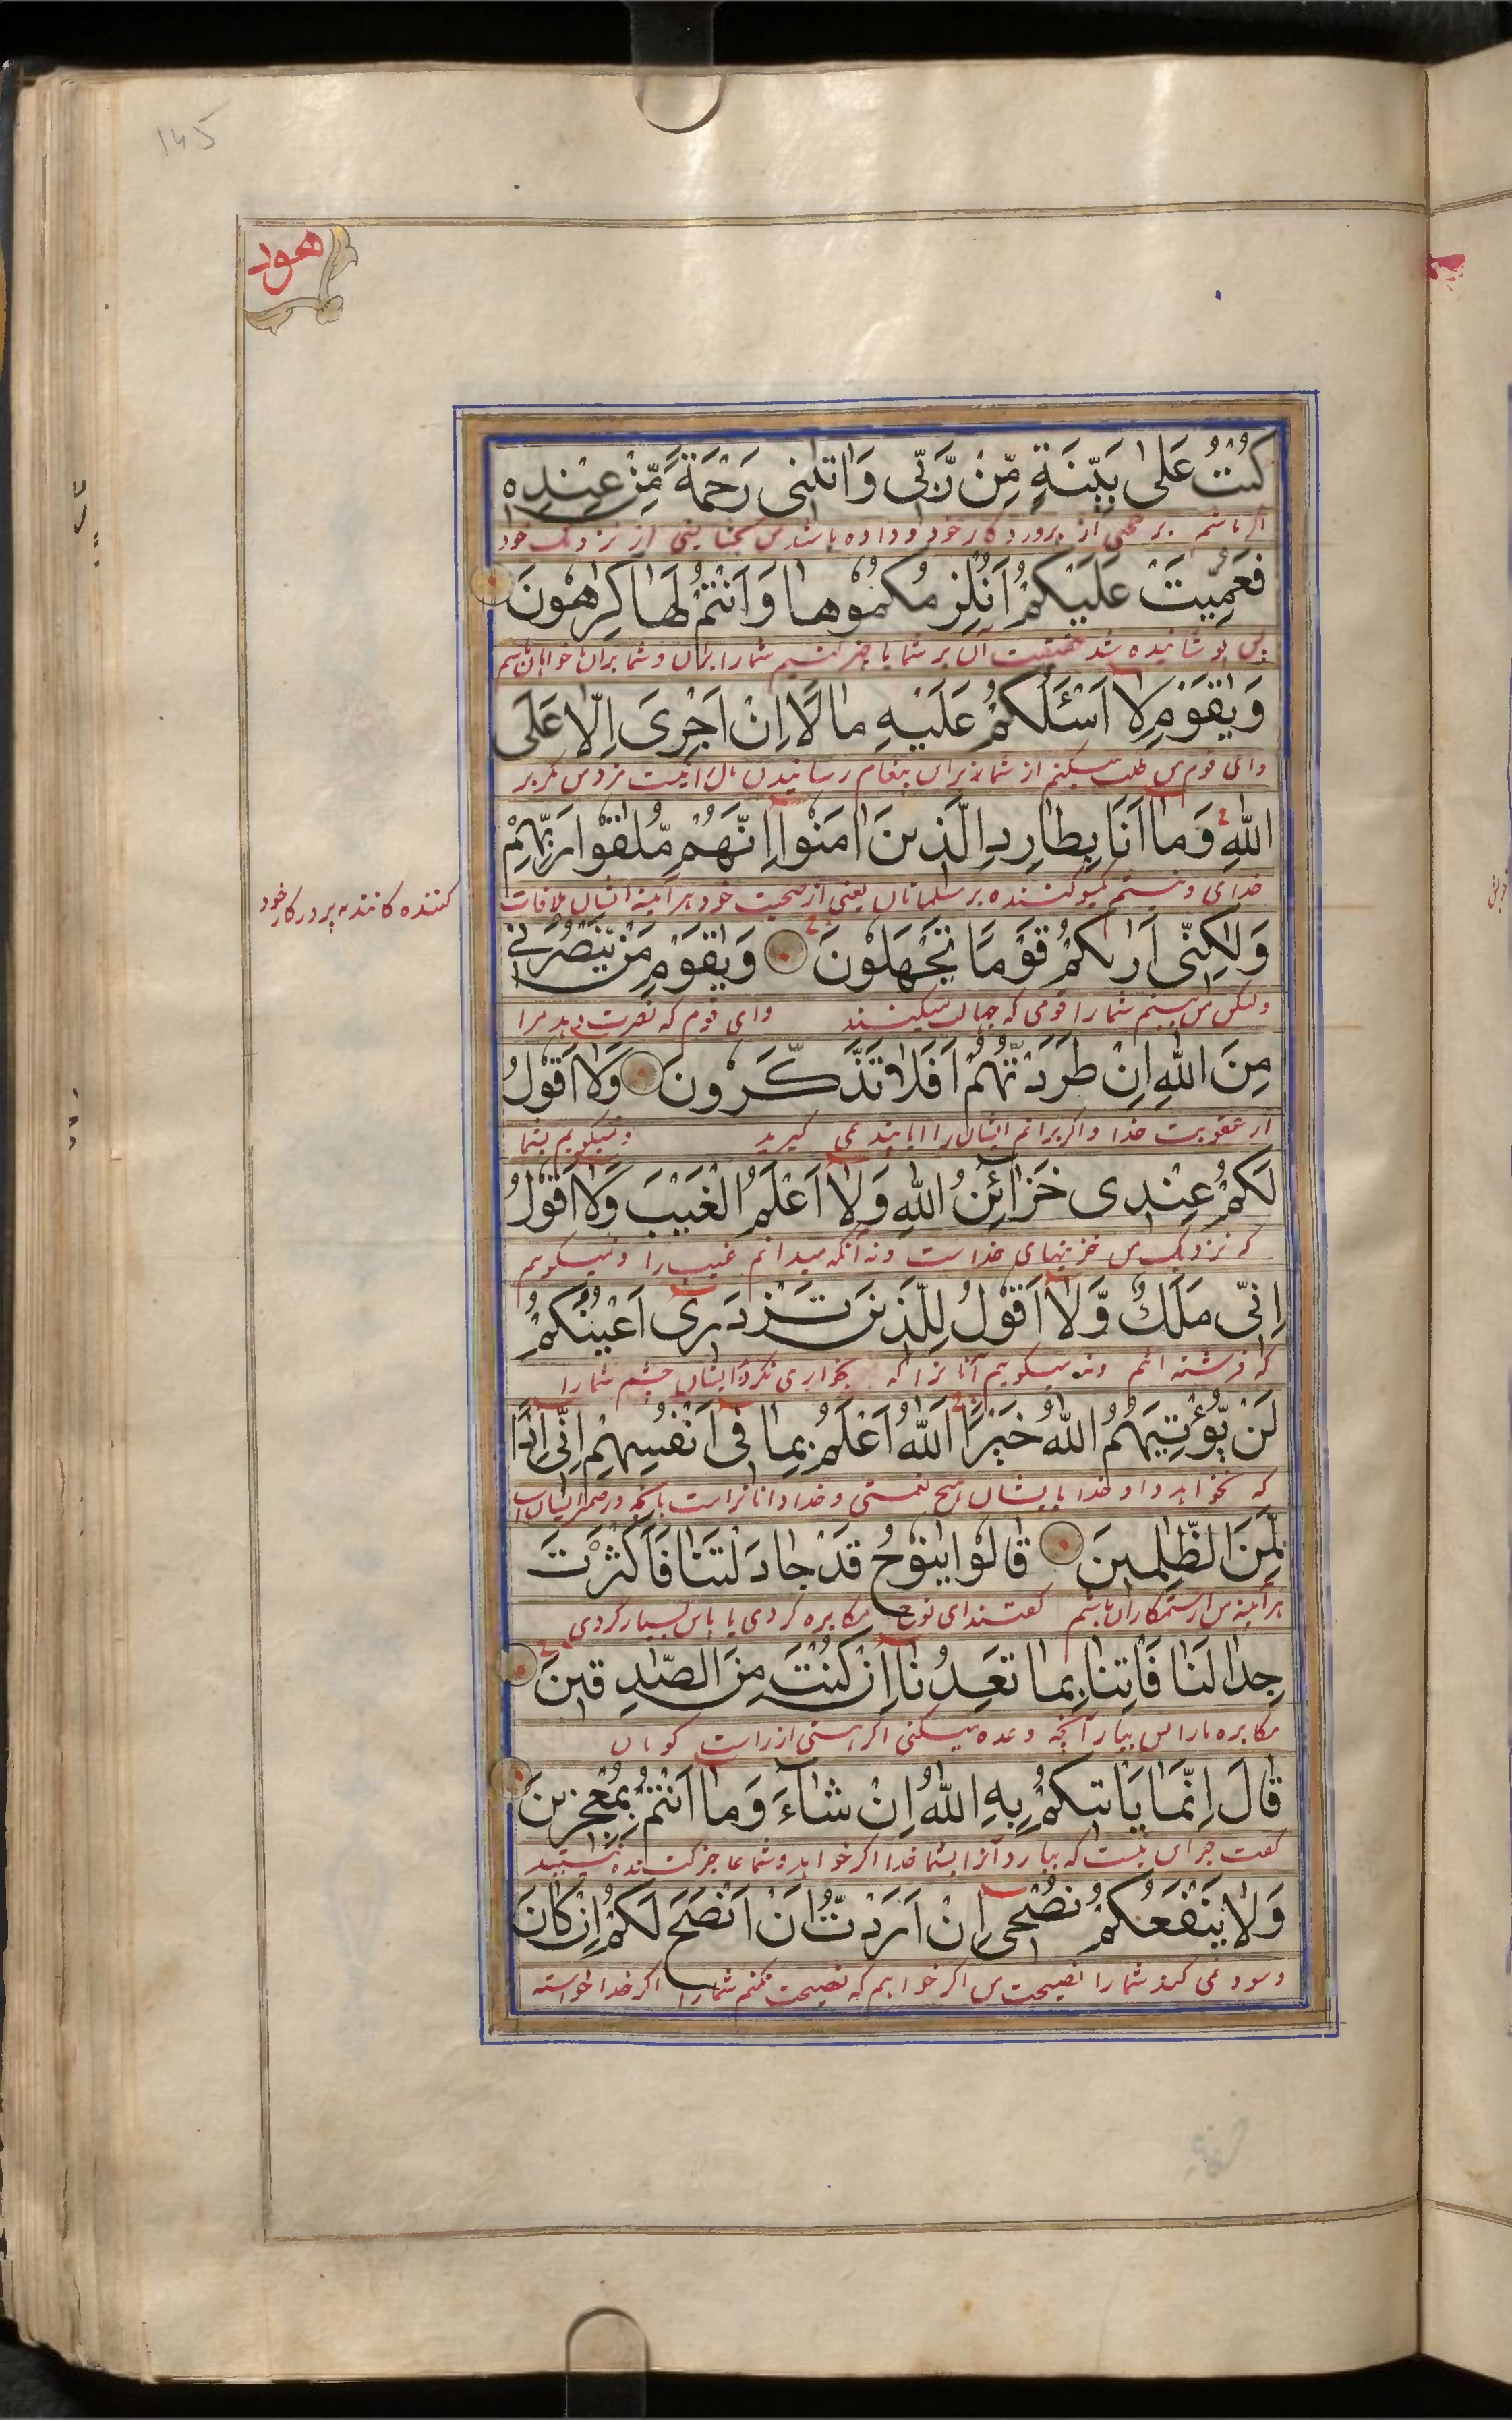 ۱۴۵
هود
كُنْتُ عَلٰى بَيِّنَةٍ مِّنْ رَّبِّى وَاٰتٰىنِى رَحْمَةً مِّنْ عِنْدِهٖ
اگر باشم بر حجتی از پروردگار خود و داده باشد من بخشایشی از نزدیک خود
فَعُمِّيَتْ عَلَيْكُمْ اَنُلْزِمُكُمُوْهَا وَاَنْتُمْ لَهَا كٰرِهُوْنَ
پس پوشانیده شد حقیقت آن بر شما یا جبر کنیم شما را بران و شما برآن
وَيٰقَوْمِ لَا اَسْئَلُكُمْ عَلَيْهِ مَالًا اِنْ اَجْرِىَ اِلَّا عَلَى
وای قوم من طلب نمیکنم از شما بران پیغام رسانیدن مال را نیست مزد من مگر بر
اللّٰهِ وَمَا اَنَا بِطَارِدِ الَّذِيْنَ اٰمَنُوْا اِنَّهُمْ مُّلٰقُوْا رَبِّهِمْ
خدای و نیستم یکسو کننده بر مسلمانان یعنی از صحبت خود هر آینه ایشان ملاقات
کننده کانند به پروردکار خود
وَلٰكِنِّى اَرٰىكُمْ قَوْمًا تَجْهَلُوْنَ وَيٰقَوْمِ مَنْ يَّنْصُرُنِىْ
ولیکن من بینم شما را قومی که جهالت میکنند وای قوم که نصرت دهد مرا
مِنَ اللّٰهِ اِنْ طَرَدْتُّهُمْ اَفَلَا تَذَكَّرُوْنَ وَلَا اَقُوْلُ
از عقوبت خدا و اگر برانم ایشان را ایا پند نمی گیرید و نمیکویم بشما
لَكُمْ عِنْدِى خَزَآئِنُ اللّٰهِ وَلَا اَعْلَمُ الْغَيْبَ وَلَا اَقُوْلُ
که نزدیک من خزینهای خداست و نه آنکه میدانم غیب را و نمیکویم
اِنِّى مَلَكٌ وَّلَا اَقُوْلُ لِلَّذِيْنَ تَزْدَرِىْ اَعْيُنُكُمْ
که فرشته ائم ونه میکویم آنانرا که بخواری نکرد ایشان چشم شما را
لَنْ يُّؤْتِيَهُمُ اللّٰهُ خَيْرًا اَللّٰهُ اَعْلَمُ بِمَا فِىْ اَنْفُسِهِمْ اِنِّىْ اِذًا
که نخواهد داد خدا بایشان هیچ نعمتی و خدا داناتراست بانچه در ضمیر ایشان است
لَّمِنَ الظّٰلِمِيْنَ قَالُوْا يٰنُوْحُ قَدْ جَادَلْتَنَا فَاَكْثَرْتَ
هرآینه من از ستمکاران باشم کفتند ای نوح مکابره کردی با ما پس بسیار کردی
جِدَالَنَا فَاْتِنَا بِمَا تَعِدُنَا اِنْ كُنْتَ مِنَ الصّٰدِقِيْنَ
مکابره مارا پس بیار آنچه وعده میکنی اگر هستی از راست کویان
قَالَ اِنَّمَا يَاْتِيْكُمْ بِهِ اللّٰهُ اِنْ شَآءَ وَمَا اَنْتُمْ بِمُعْجِزِيْنَ
کفت جز این نیست که بیارد آنرا بشما خدا اگر خواهد و شما عاجز کننده نیستید
وَلَا يَنْفَعُكُمْ نُصْحِى اِنْ اَرَدْتُّ اَنْ اَنْصَحَ لَكُمْ اِنْ كَانَ
و سود نمی کند شما را نصیحت من اگر خواهم که نصیحت کنم شما را اگر خدا خواسته